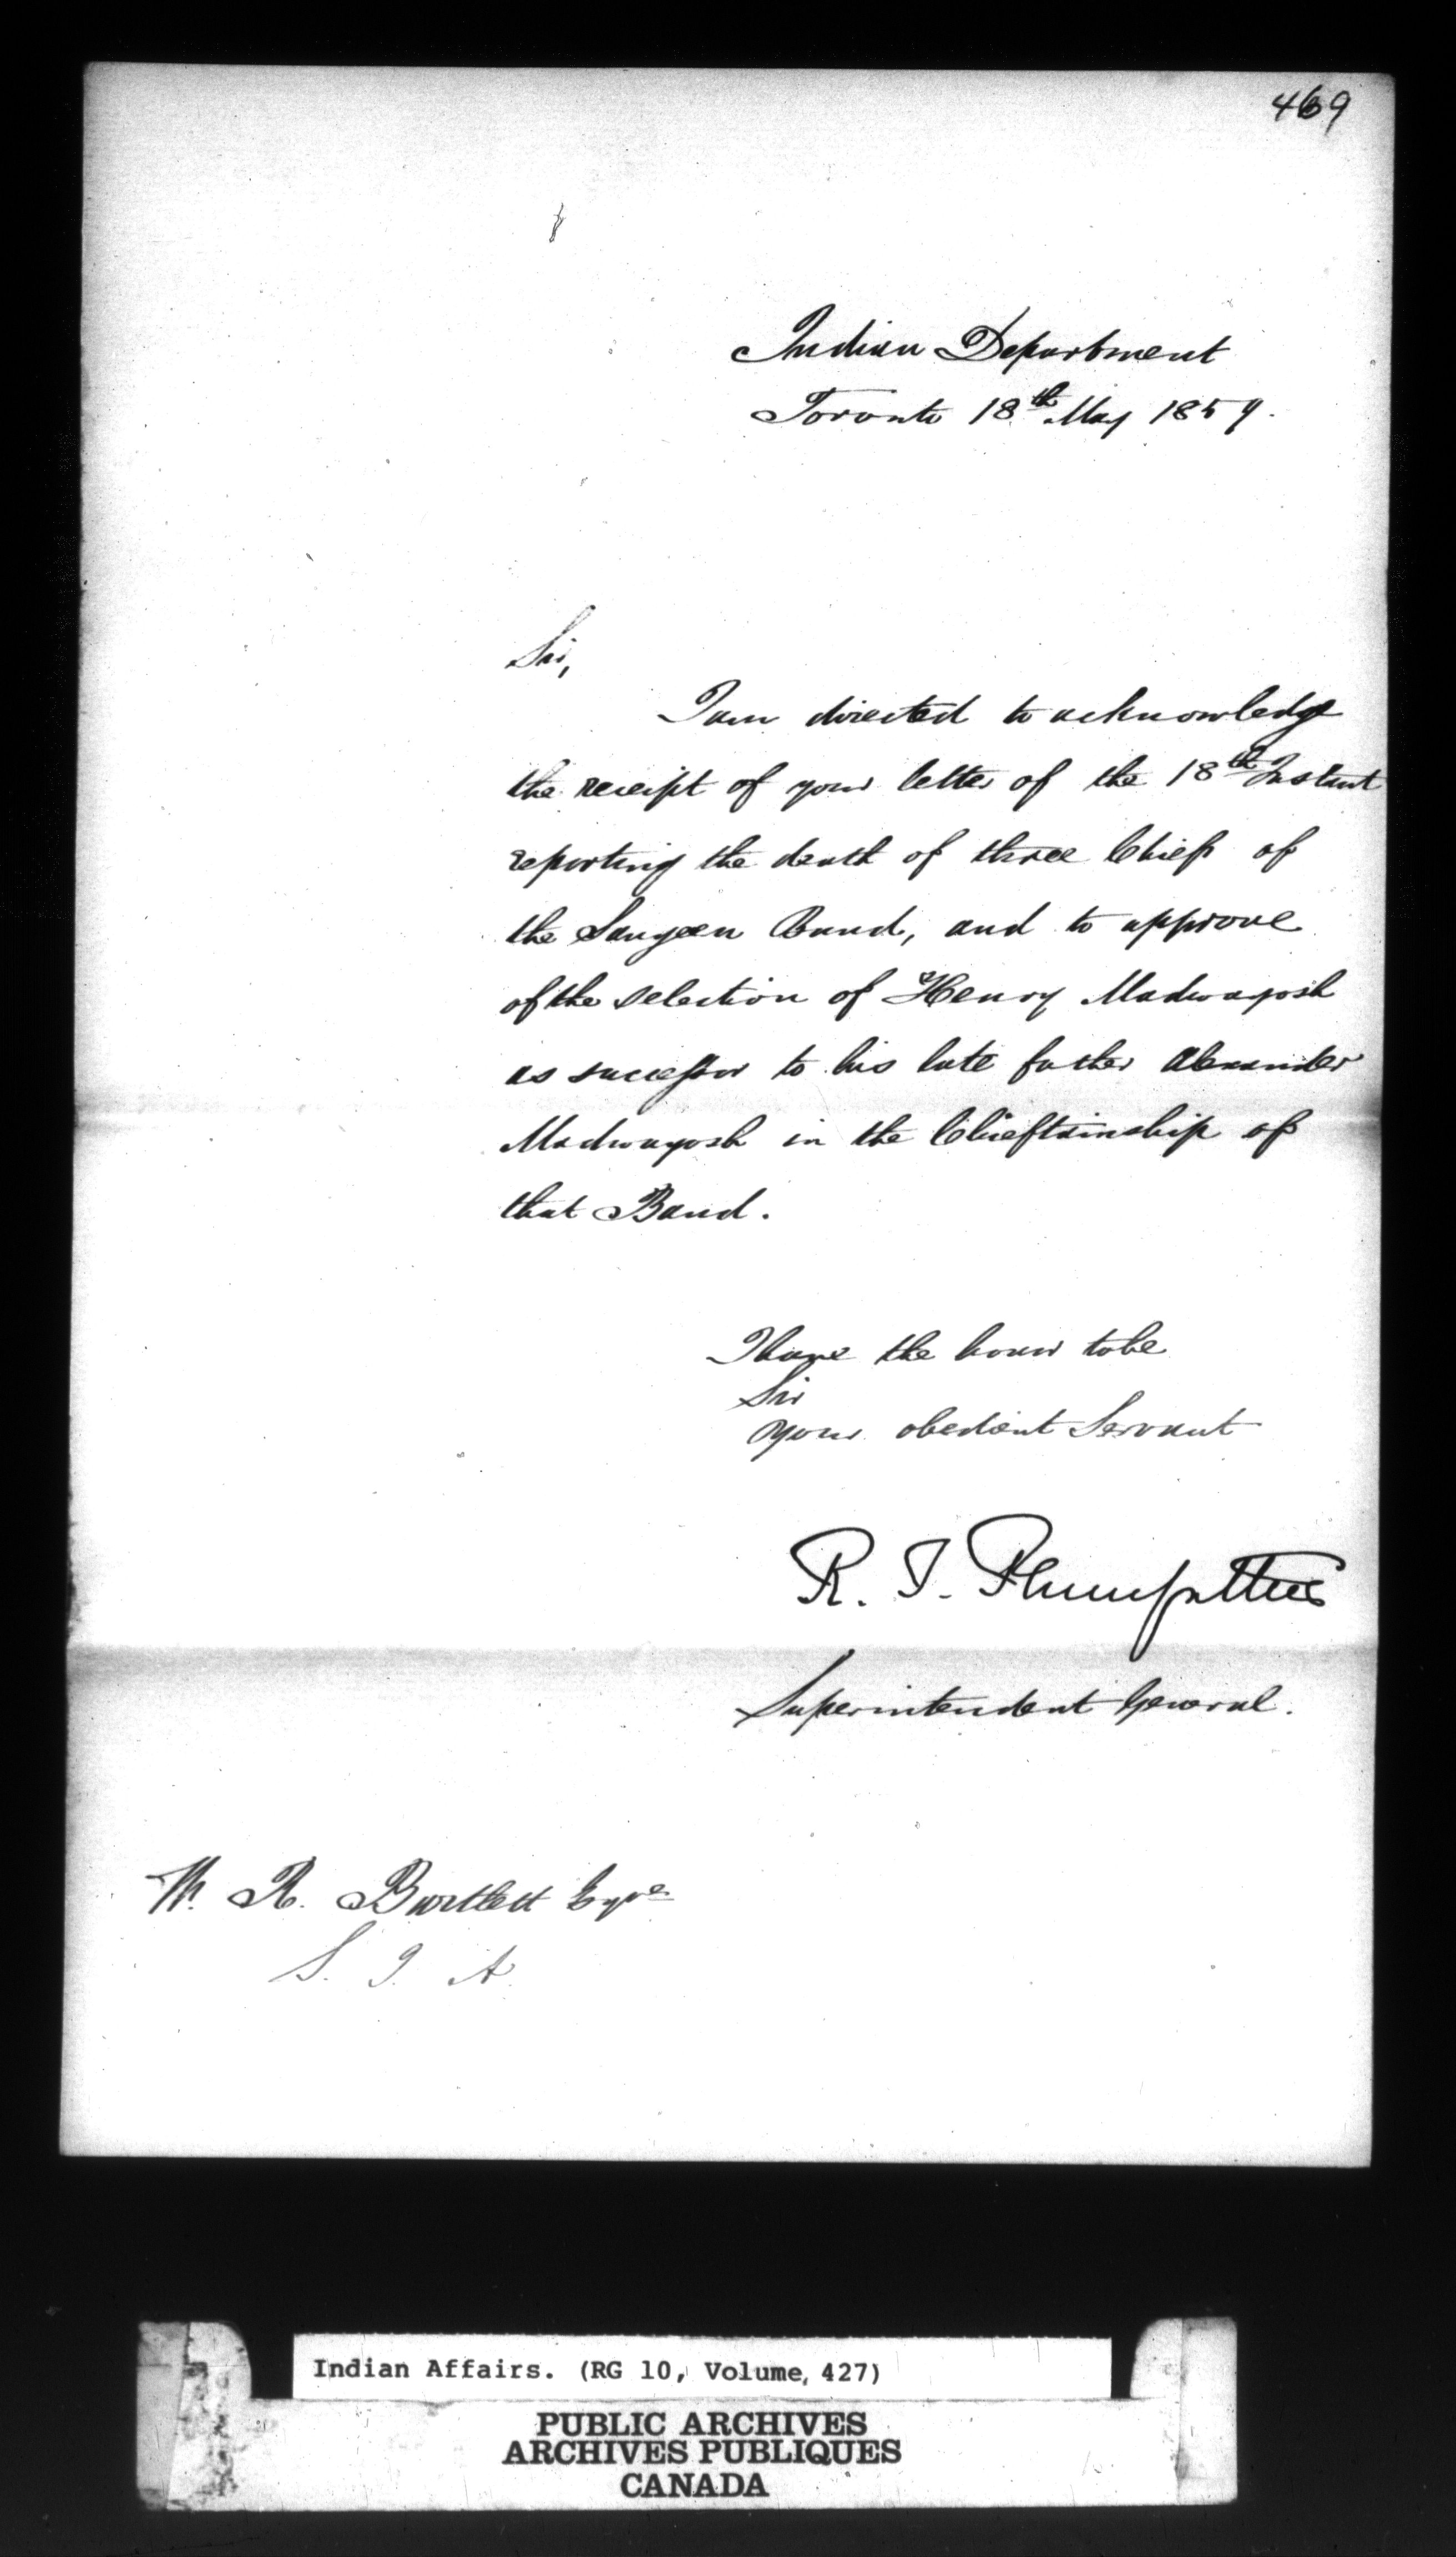 469
Indian Department
Toronto 18th May 1859.
Sir,
I am directed to acknowledge
the receipt of your letter of the 18th Instant
reporting the death of three Chiefs of
the Saugeen Band, and to approve
of the selection of Henry Madwayosh
as successor to his late father Alexander
Madwayosh in the Chieftainship of
that Band.
I have the honor to be
Sir
Your obedient Servant
R. T. Pennefather
Superintendent General.
W. R. Bartlett Esqre
S. I. A
Indian Affairs. (RG 10, Volume, 427)
PUBLIC ARCHIVES
ARCHIVES PUBLIQUES
CANADA